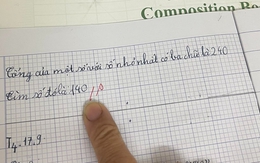 Composition Bo
Tổng của một số với số nhỏ nhất có ba chữ là 240
tìm số đó là 140
T4.17.9